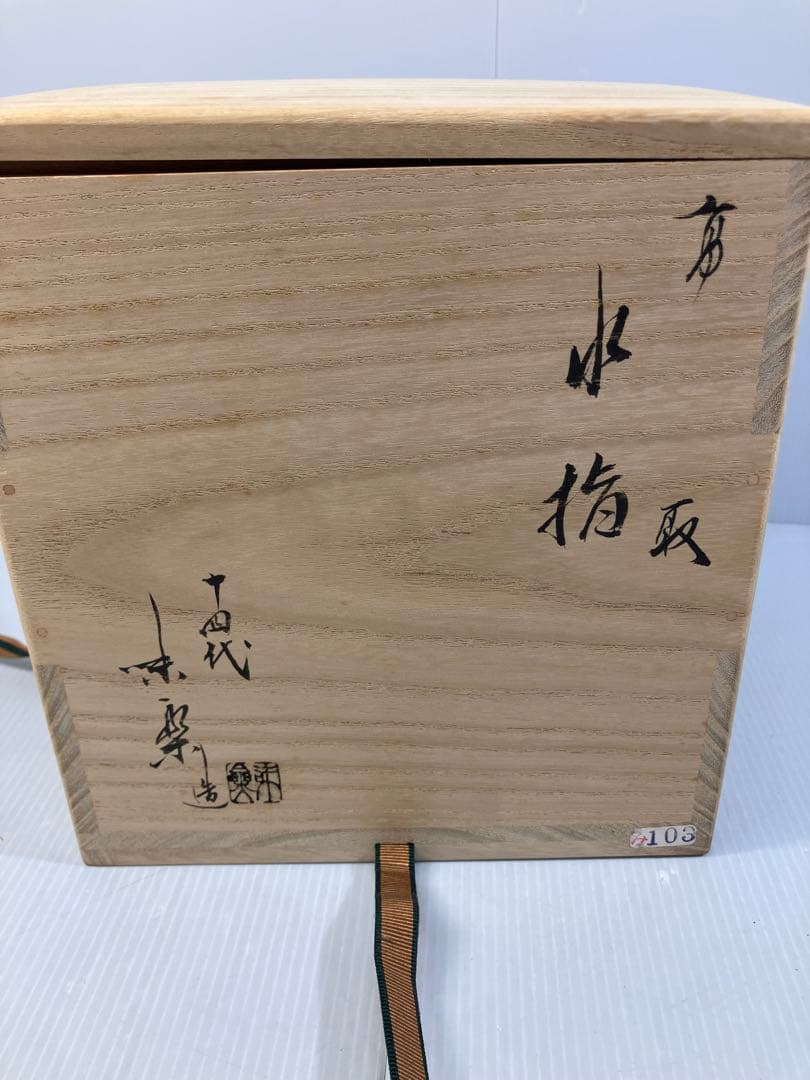 高取
水指
十四代
味楽造
103